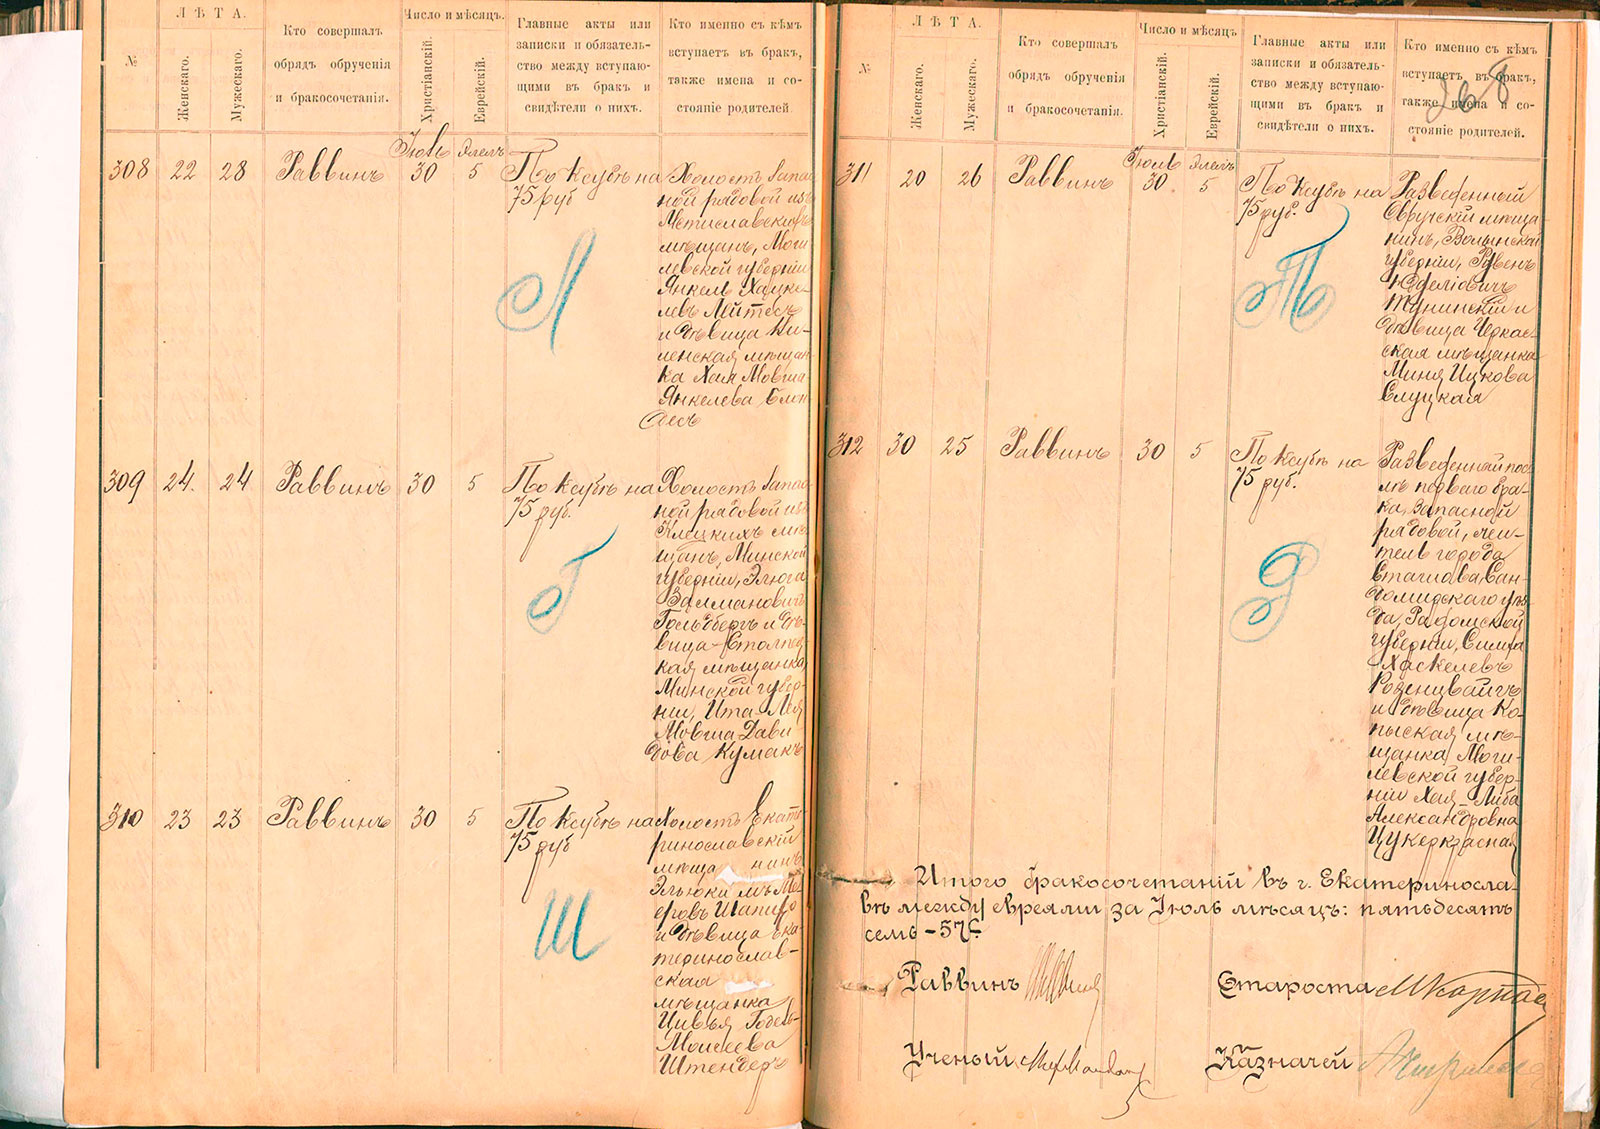 ЛѢТА.
№
Женскаго.
Мужескаго.
Кто совершалъ
обрядъ обрученія
и бракосочетанія.
Число и мѣсяцъ.
Христіанскій.
Еврейскій.
Главные акты или
записки и обязатель-
ство между вступаю-
щими въ бракъ и
свидѣтели о нихъ.
Кто именно съ кѣмъ
вступаетъ въ бракъ,
также имена и со-
стояніе родителей.
Іюль Элелъ
308 22 28 Раввинъ 30 5
По ксубѣ на
75 руб
Л
Холостъ запас
ной рядовой изъ
Мстиславскихъ
мѣщанъ, Моги
левской губерніи
Янкель Хацке
левъ Лейтесъ
и дѣвица Ви-
ленская мѣщан-
ка Хая Мовша
Янкелева Блон
десъ
309 24 24 Раввинъ 30 5
По ксубѣ на
75 руб.
Г
Холостъ запас
ной рядовой изъ
Клецкихъ мѣ
щанъ, Минской
губерніи, Элюга
Залмановичъ
Гольдбергъ и дѣ
вица Столпец
кая мѣщанка
Минской губер-
ніи, Ита-Лея
Мовша Дави
дова Кумакъ
310 23 23 Раввинъ 30 5
По ксубѣ на
75 руб
Ш
Холостъ Екате
ринославскій
мѣщанинъ
еровъ Шапиро
и дѣвица Ека-
теринослав-
ская
мѣщанка
Цивья Годель
Моисеева
Штендеръ
ЛѢТА.
№
Женскаго.
Мужескаго.
Кто совершалъ
обрядъ обрученія
и бракосочетанія.
Число и мѣсяцъ
Христіанскій.
Еврейскій.
Главные акты или
записки и обязатель-
ство между вступаю-
щими въ бракъ и
свидѣтели о нихъ.
Кто именно съ кѣмъ
вступаетъ въ бракъ,
также имена и со-
стояніе родителей.
268
Іюль Элелъ
311 20 26 Раввинъ 30. 5
По ксубѣ на
75 руб.
Т
Разведенный
Овручскій мѣща
нинъ, Волынской
губерніи, Рувенъ
Юделіовичъ
Тунинскій и
дѣвица Черкас-
ская мѣщанка
Миня Ицкова
Слуцкая
312 30 25 Раввинъ 30 5
По ксубѣ на
75 руб.
Р
Разведенный пос
лѣ перваго бра-
ка, запасной
рядовой, жи-
тель города
Сташова, Сан-
домирскаго уѣз
да, Радомской
губерніи, Симха
Хаскелевъ
Розенцвайгъ
и дѣвица Ко-
пыская мѣ-
щанка Моги-
левской губер-
ніи Хая-Либа
Александровна
Цукеркрасная
Итого бракосочетаній въ г. Екатеринославѣ
вѣ между евреями за Іюль мѣсяцъ: пятьдесятъ
семь – 57.
Раввинъ
Староста
Ученый
Казначей